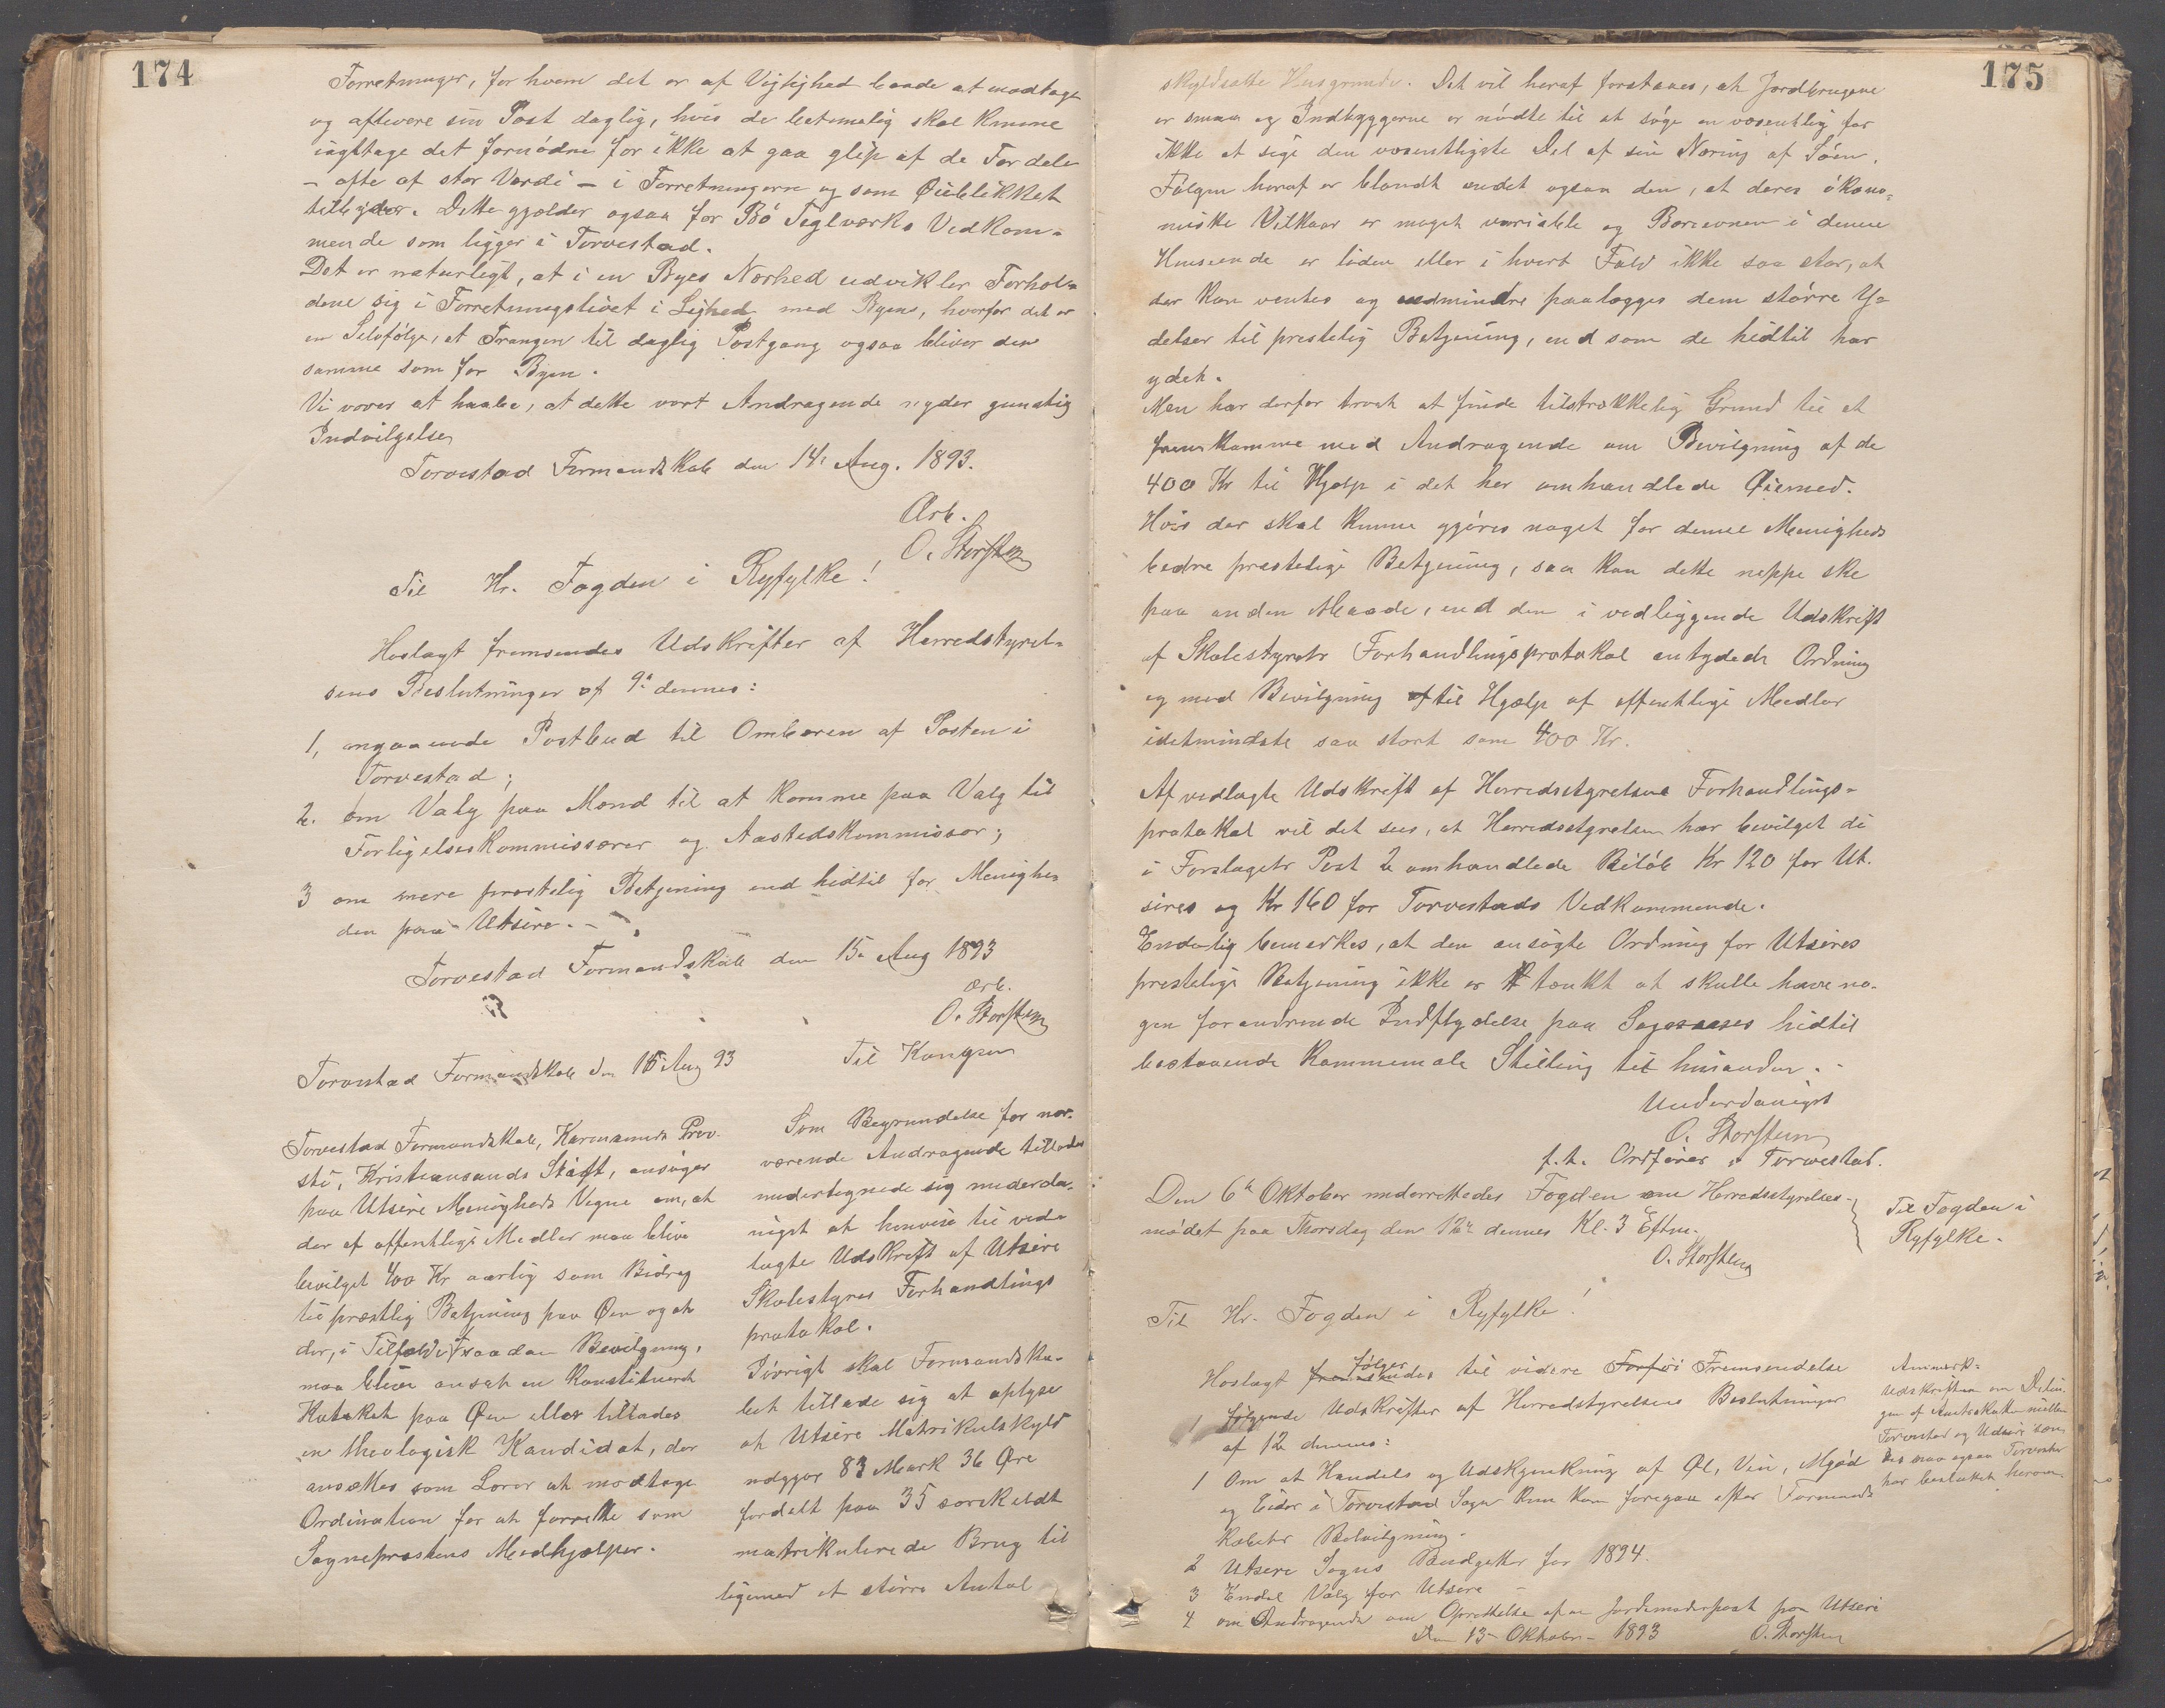 174
Forretninger, for hvem det er af Vigtighed baade at modtage
og aflevere sin Post daglig, hvis de betimelig skal kunne
iagttage det fornødne for ikke at gaa glip af de Fordele
– ofte af stor Værdi – i Forretningerne og som Øieblikket
tilbyder. Dette gjælder ogsaa for Bø Teglværks Vedkom-
mende som ligger i Torvestad.
Det er naturligt, at i en Byes Nærhed udvikler Forhol-
dene sig i Forretningslivet i Lighed med Byens, hvorfor det er
en Selvfølge, at Trangen til daglig Postgang ogsaa bliver den
samme som for Byen.
Vi vover at haabe, at dette vort Andragende nyder gunstig
Indvilgelse
Torvestad Formandskab den 14de Aug. 1893.
Ærb.
O. Storsten
Til Hr. Fogden i Ryfylke!
Hoslagt fremsendes Udskrifter af Herredstyrel-
sens Beslutninger af 9de dennes:
1, angaaende Postbud til Ombæren af Posten i
Torvestad;
2. om Valg paa Mænd til at komme paa Valg til
Forligelseskommissærer og Aastedskommissær;
3 om mere præstelig Betjening end hidtil for Menighe-
den paa Utsire. –
Torvestad Formandskab den 15de Aug 1893
ærb.
O. Storsten
Torvestad Formandskab den 15de Aug 93
Torvestad Formandskab, Karmsunds Prov-
sti, Kristiansands Stift, ansøger
paa Utsire Menigheds Vegne om, at
der af offentlige Midler maa blive
bevilget 400 Kr aarlig som Bidrag
til præstlig Betjening paa Øen og at
der, i Tilfælde saadan Bevilgning,
maa blive ansat en konstitueret
Kateket paa Øen eller tillades
en theologisk Kandidat, der
ansættes som Lærer at modtage
Ordination for at forrette som
Sognepræstens Medhjælper.
Til Kongen
Som Begrundelse for nær-
værende Andragende tillader
undertegnede sig underda-
nigst at henvise til ved-
lagte Udskrift af Utsire
Skolestyres Forhandlings
protokol.
Iøvrigt skal Formandska-
bet tillade sig at oplyse
at Utsire Matrikulskyld
udgjør 83 Mark 36 Øre
fordelt paa 35 særskildt
matrikulerede Brug til
ligemed et større Antal
175
skyldsatte Husgrunde. Det vil heraf forstaaes, at Jordbrugene
er smaa og Indbyggerne er nødte til at søge en væsentlig for
ikke at sige den væsentligste Del af sin Næring af Søen.
Følgen heraf er blandt andet ogsaa den, at deres økono-
miske Vilkaar er meget variable og Bæreevnen i denne
Henseende er liden eller i hvert Fald ikke saa stor, at
der kan ventes og endmindre paalægges dem større Y-
delser til præstelig Betjening, end som de hidtil har
ydet.
Men har derfor troet at finde tilstrækkelig Grund til at
fremkomme med Andragende om Bevilgning af de
400 Kr til Hjælp i det her omhandlede Øiemed.
Hvis der skal kunne gjøres noget for denne Menigheds
bedre præstelige Betjening, saa kan dette neppe ske
paa anden Maade, end den i vedliggende Udskrift
af Skolestyrets Forhandlingsprotokol antydede Ordning
og med Bevilgning til Hjælp af offentlige Midler
idetmindste saa stort som 400 Kr.
Af vedlagte Udskrift af Herredsstyrelsens Forhandlings-
protokol vil det sees, at Herredsstyrelsen har bevilget de
i Forslagets Post 2 omhandlede Beløb Kr 120 for Ut-
sires og Kr 160 for Torvestads Vedkommende.
Endelig bemerkes, at den ansøgte Ordning for Utsires
præstelige Betjening ikke er tænkt at skulle have no-
gen forandrende Indflydelse paa Sognenes hidtil
bestaaende kommunale Stilling til hinanden. –
Underdanigst
O. Storsten
f.t. Ordfører i Torvestad.
Den 6te Oktober underrettedes Fogden om Herredsstyrelses-
mødet paa Thorsdag den 12te dennes Kl. 3 Eftm.
O. Storsten
Til Fogden i
Ryfylke.
Til Hr. Fogden i Ryfylke!
Hoslagt fremsendes følger til videre Forføi Fremsendelse
følgende Udskrifter af Herredstyrelsens Beslutninger
af 12 dennes:
1 Om at Handels og Udskjænkning af Øl, Vin, Mjød
og Cider i Torvestad Sogn kun kan foregaa efter Formands
kabets Bevilgning.
2 Utsire Sogns Budgetter for 1894.
3 Endel Valg for Utsire –
4 om Andragende om Oprettelse af en Jordemoderpost paa Utsire
Den 13de Oktober 1893 O. Storsten
Anmærk-
Udskriften om Delin-
gen af Amtsskatten mellem
Torvestad og Utsire sen-
des naar ogsaa Torvestad
har besluttet herom.